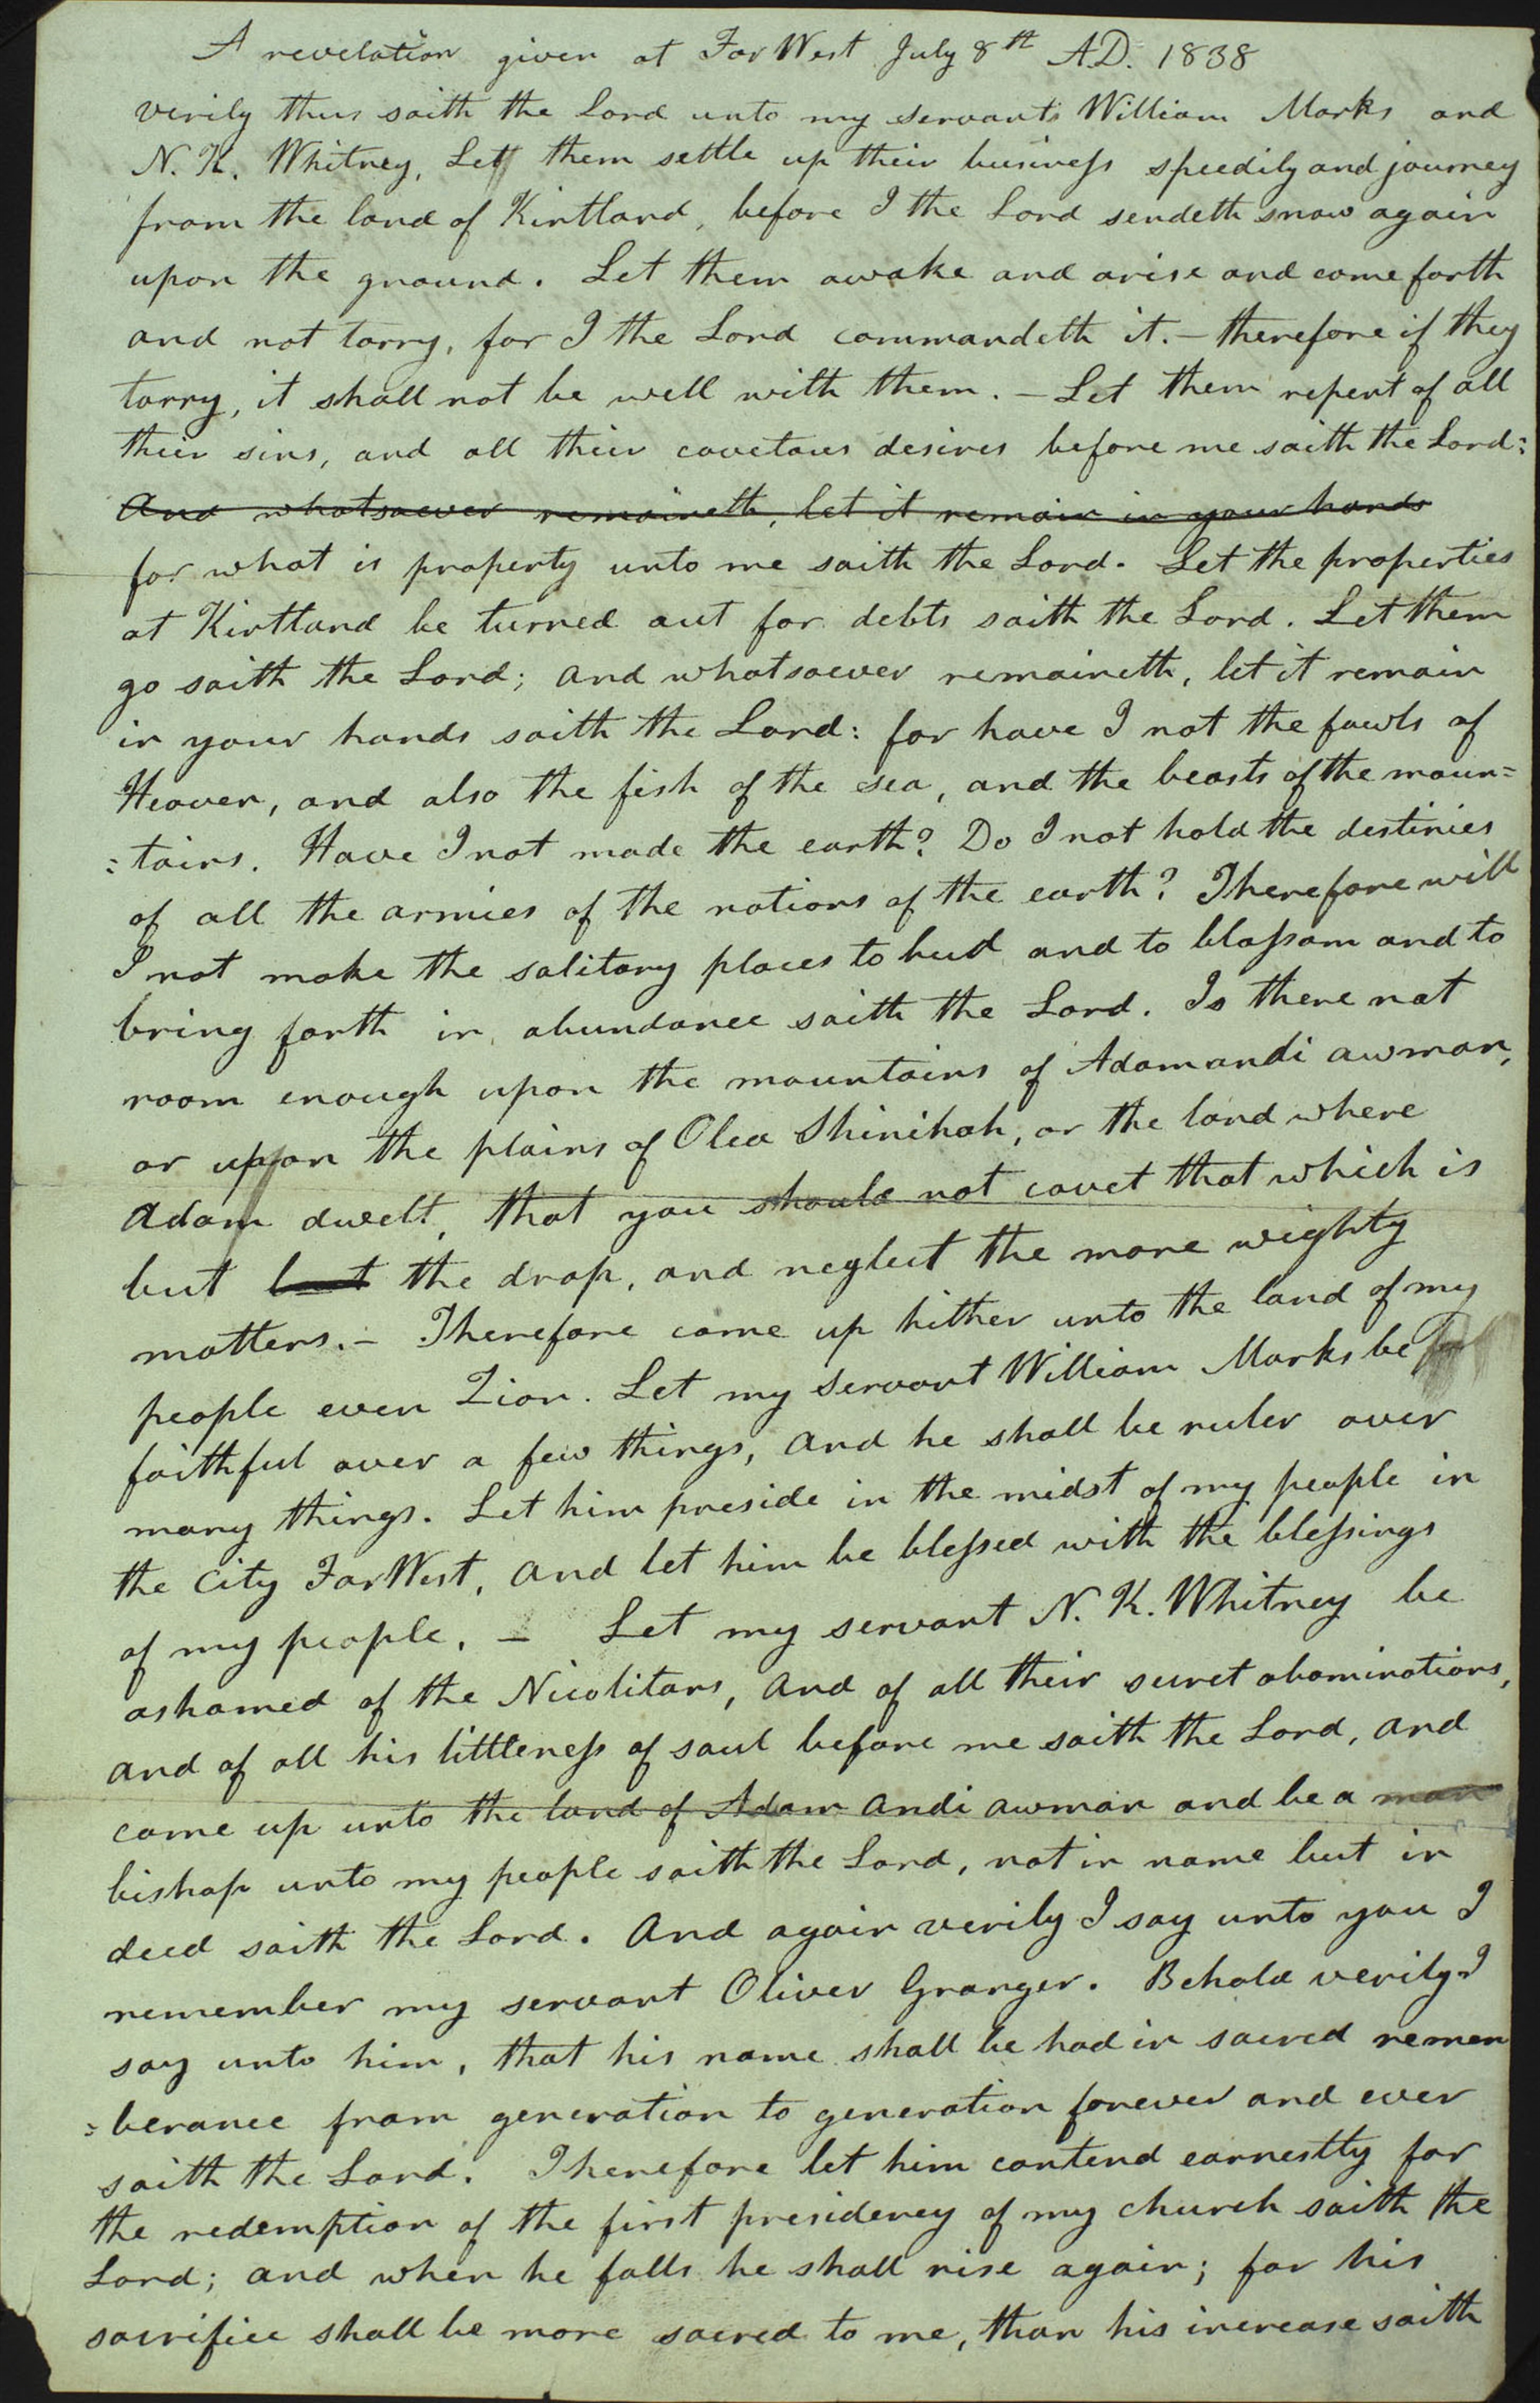 A revelation given at Far West July 8th A.D. 1838
verily thus saith the Lord unto my servants William Marks and
N. K. Whitney, Let them settle up their business speedily and journey
from the land of Kirtland, before I the Lord sendeth snow again
upon the ground. Let them awake and arise and come forth
and not tarry, for I the Lord commandeth it. – therefore if they
tarry, it shall not be well with them. – Let them repent of all
their sins, and all their covetous desires before me saith the Lord:
And whatsoever remaineth, let it remain in your hands
for what is property unto me saith the Lord. Let the properties
at Kirtland be turned out for debts saith the Lord. Let them
go saith the Lord; and whatsoever remaineth, let it remain
in your hands saith the Lord: for have I not the fowls of
Heaven, and also the fish of the sea, and the beasts of the moun=
=tains. Have I not made the earth? Do I not hold the destinies
of all the armies of the nations of the earth? Therefore will
I not make the solitary places to bud and to blossom and to
bring forth in abundance saith the Lord. Is there not
room enough upon the mountains of Adamandi awman,
or upon the plains of Olea Shinihah, or the land where
Adam dwelt, that you should not covet that which is
but but the drop, and neglect the more wighty
matters. – Therefore come up hither unto the land of my
people even Zion. Let my servant William Marks be
faithful over a few things, and he shall be ruler over
many things. Let him preside in the midst of my people in
the City Far West, and let him be blessed with the blessings
of my people. – Let my servant N. K. Whitney be
ashamed of the Nicolitans, and of all their secret abominations,
and of all his littleness of soul before me saith the Lord, and
come up unto the land of Adam andi awman and be a man
bishop unto my people saith the Lord, not in name but in
deed saith the Lord. And again verily I say unto you I
remember my servant Oliver Granger. Behold verily I
say unto him, that his name shall be had in sacred remem
=berance from generation to generation forever and ever
saith the Lord. Therefore let him contend earnestly for
the redemption of the first presidency of my church saith the
Lord; and when he falls he shall rise again; for his
sacrifice shall be more sacred to me, than his increase saith